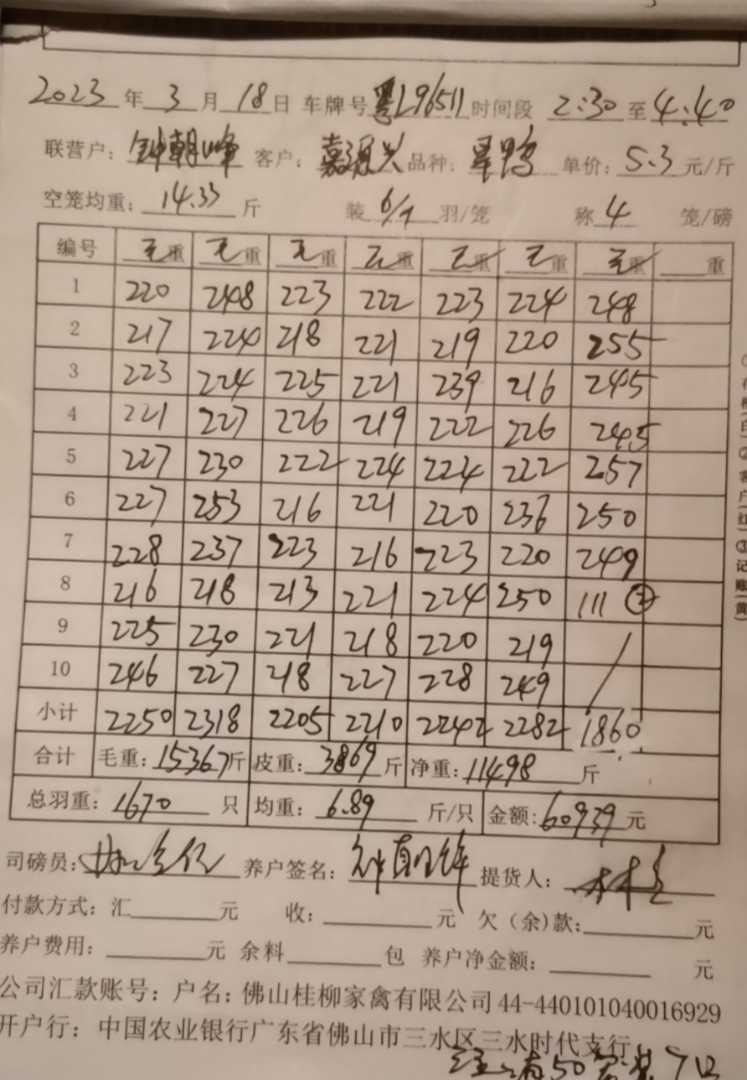 2023年3月18日 车牌号粤L96511时间段 2:30至4:40
联营户:钟朝峰 客户:嘉 兴 品种:旱鸭 单价:5.3元/斤
空笼均重:14.33斤 装6/7羽/笼 称4笼/磅
编号 毛重 毛重 毛重 毛重 毛重 毛重 毛重 重
1 220 248 223 222 223 224 248
2 217 224 218 221 219 220 255
3 223 224 225 221 239 216 245
4 221 227 226 219 222 226 245
5 227 230 222 224 224 222 257
6 227 253 216 221 220 236 250
7 228 237 223 216 223 220 249
8 216 218 213 221 224 250 111 ②
9 225 230 221 218 220 219 /
10 246 227 218 227 228 249
小计 2250 2318 2205 2210 2242 2282 1860
合计 毛重:15367斤 皮重:3869斤 净重:11498斤
总羽重:1670只 均重:6.89斤/只 金额:60939元
司磅员: 养户签名: 提货人:
付款方式:汇 元 收: 元 欠(余)款: 元
养户费用: 元 余料 包 养户净金额: 元
公司汇款账号:户名:佛山桂柳家禽有限公司44-440101040016929
开户行:中国农业银行广东省佛山市三水区三水时代支行
50 装7只
② 客户(红)③记账(黄)